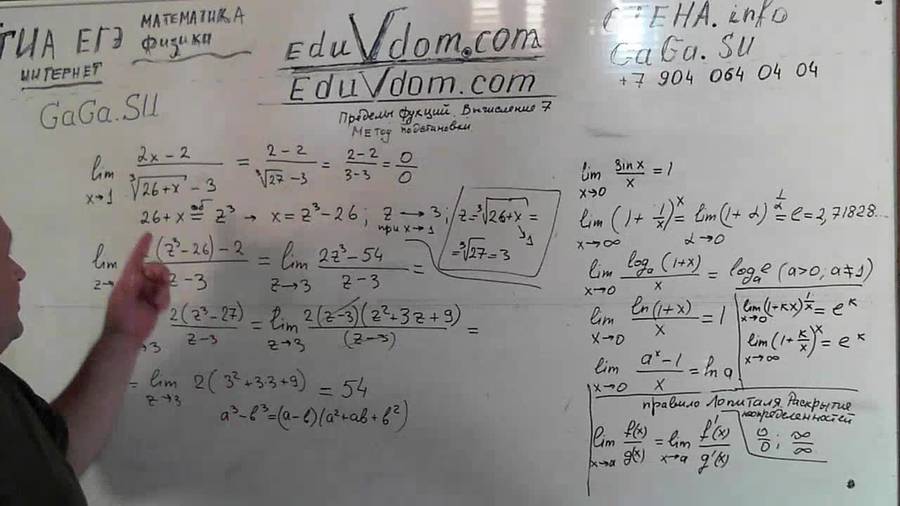 ГИА ЕГЭ МАТЕМАТИКА
физика
ИНТЕРНЕТ
GaGa.SU
EduVdom.com
EduVdom.com
Пределы фукций. Вычисление 7
Метод подстановки
СТЕНА.info
GaGa.SU
+7 904 064 04 04
lim x→1 (2x-2)/(∛(26+x) - 3) = (2-2)/(∛27 - 3) = (2-2)/(3-3) = 0/0
26+x = z³ → x = z³-26; z → 3; при x→1
z = ∛(26+x) =
→1
= ∛27 = 3
lim z→ (z³-26)-2 / z-3 = lim z→3 (2z³-54)/(z-3) =
→3 2(z³-27)/(z-3) = lim z→3 2(z-3)(z²+3z+9)/(z-3) =
= lim z→3 2(3²+3·3+9) = 54
a³-b³=(a-b)(a²+ab+b²)
lim x→0 sinx/x = 1
lim x→∞ (1+1/x)^x = lim α→0 (1+α)^(1/α) = e = 2,71828...
lim x→0 logₐ(1+x)/x = logₐe (a>0; a≠1)
lim x→0 ln(1+x)/x = 1
lim x→0 (1+кx)^(1/x) = e^к
lim x→∞ (1+к/x)^x = e^к
lim x→0 (aˣ-1)/x = ln a
правило Лопиталя Раскрытие
неопределенностей
lim x→a f(x)/g(x) = lim x→a f'(x)/g'(x) 0/0; ∞/∞